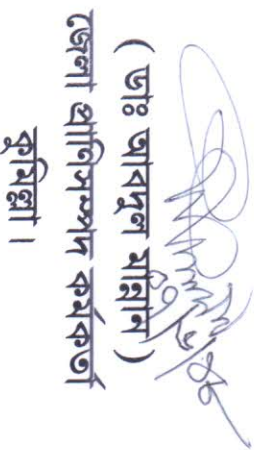 ( ডাঃ আবদুল মান্নান )
জেলা প্রাণিসম্পদ কর্মকর্তা
কুমিল্লা।